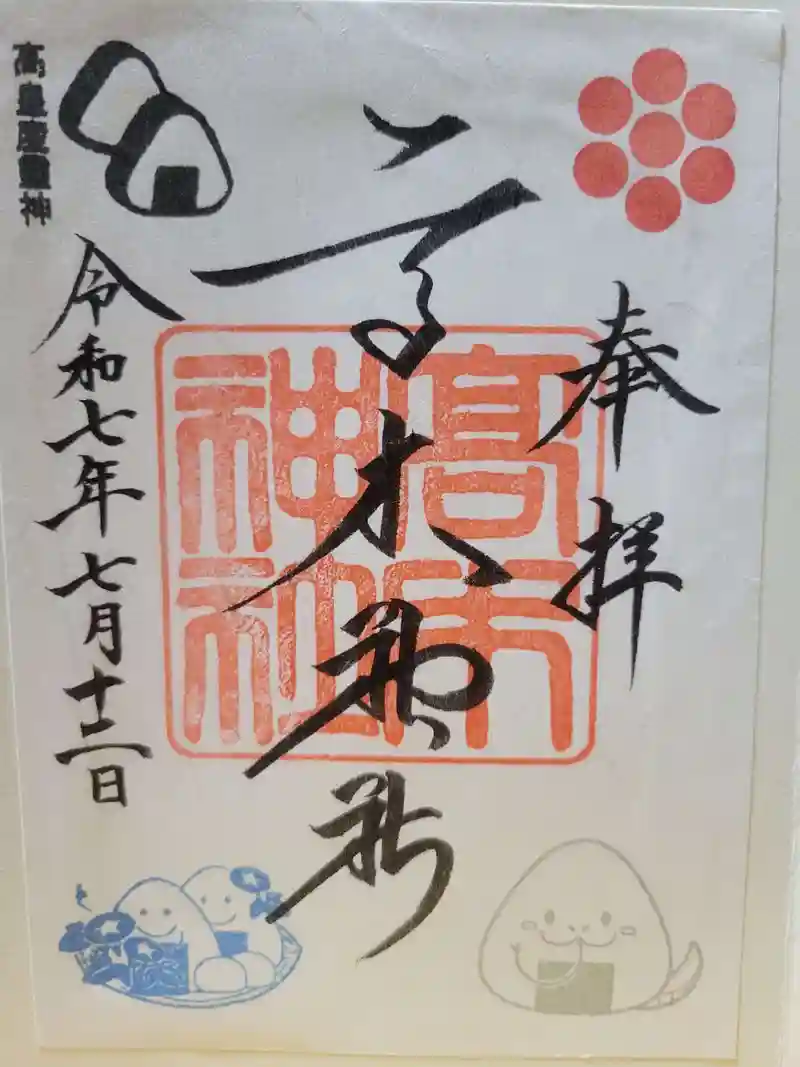 奉拝
高木神社
高木神社
令和七年七月十二日
高皇産靈神